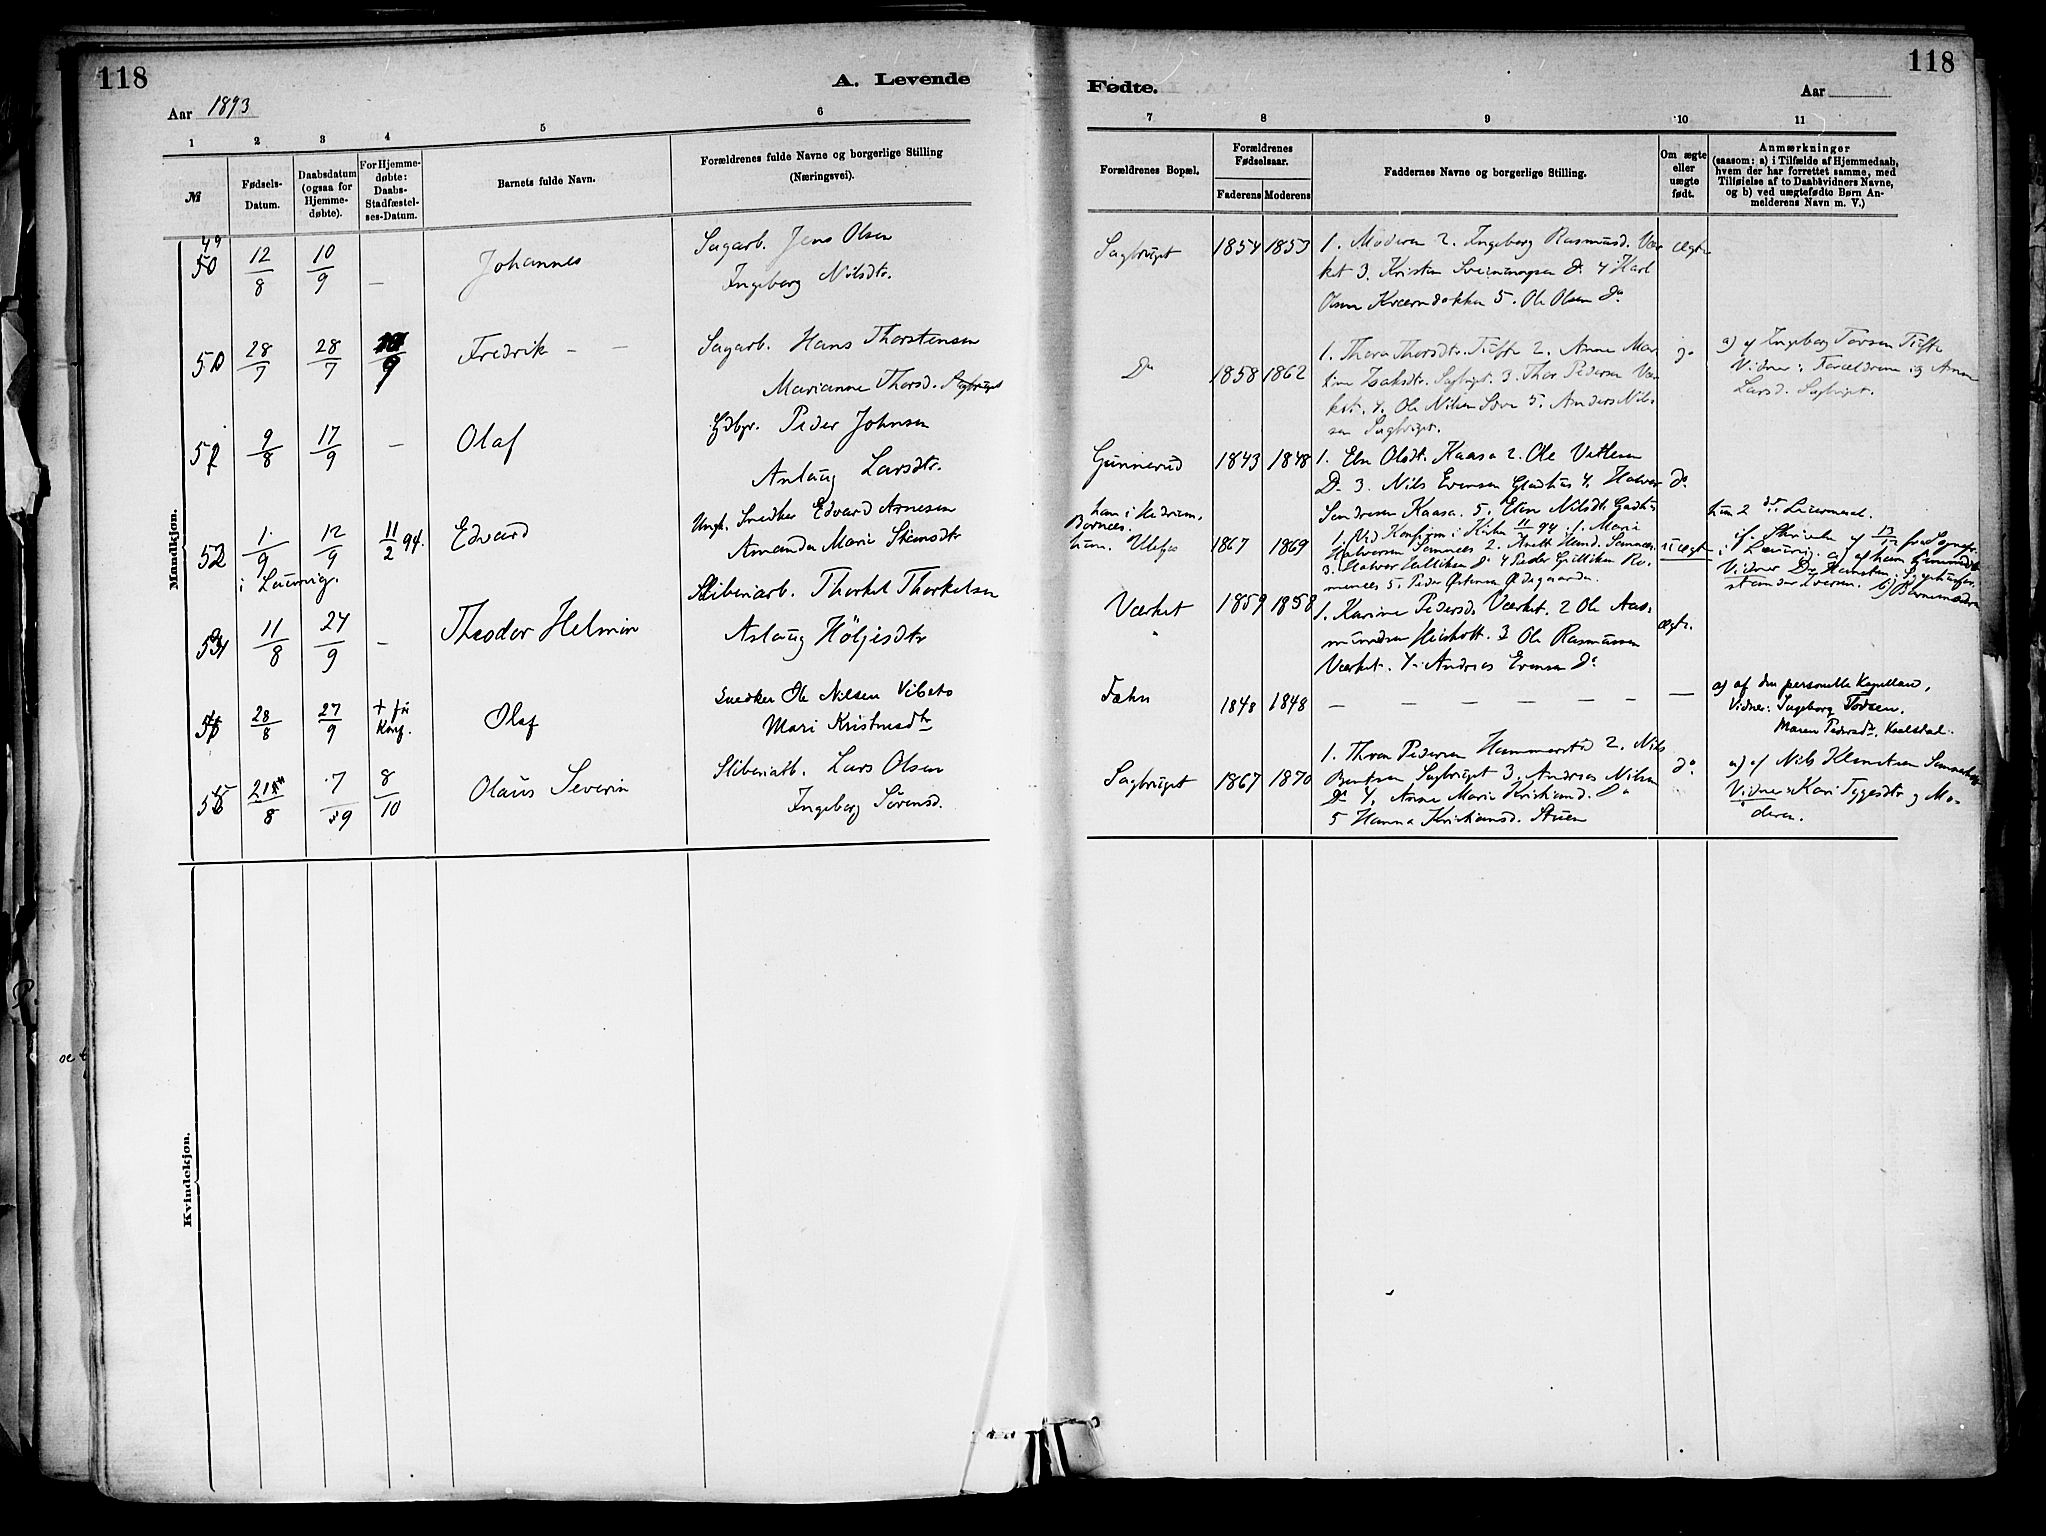 118
A. Levende
Aar 1893
1 2 3 4 5 6
№
Fødsels-
Datum.
Daabsdatum
(ogsaa for
Hjemme-
døbte).
For Hjemme-
døbte:
Daabs-
Stadfæstel-
ses-Datum.
Barnets fulde Navn.
Forældrenes fulde Navne og borgerlige Stilling
(Næringsvei).
Mandkjøn.
49
50 12/8 10/9 — Johannes
Sagarb. Jens Olsen
Ingeborg Nilsdtr.
50 28/7 28/7 /9 Fredrik — —
Sagarb. Hans Thorstensen
Marianne Thorsd. Sagbruget
51 9/8 17/9 — Olaf
Gdbr. Peder Johnsen
Aslaug Larsdtr.
52 1/9 12/9 11/2 94. Edvard
i Laurvig.
Ungk. Snedker Edvard Arnesen
Amanda Marie
53 11/8 24/9 — Theodor Helmin
Sliberiarb. Thorkel Thorkelsen
Aslaug Høljesdtr
54 28/8 27/9 + før
Konf.
Olaf
Snedker Ole Nilsen Vibeto
Mari Kristensdtr
55 21/8 7/9 8/10 Olaus Severin
Sliberiarb. Lars Olsen
Ingeborg Sørensd.
Kvindekjøn.
Fødte.
118
Aar
7 8 9 10 11
Forældrenes Bopæl.
Forældrenes
Fødselsaar.
Faderens Moderens
Faddernes Navne og borgerlige Stilling.
Om ægte
eller
uægte
født.
Anmærkninger
(saasom: a) i Tilfælde af Hjemmedaab,
hvem der har forrettet samme, med
Tilføielse af to Daabsvidners Navne,
og b) ved uægtefødte Børn An-
melderens Navn m. V.)
Sagbruget 1854 1853 1. Moderen 2. Ingeborg Rasmusd. Vær- Ægte
ket 3. Kristen Sveinungsen Do 4 Karl
Olsen Kværndokken 5. Ole Olsen Do
Do 1858 1862 1. Thora Thorsdtr. Tufte 2. Anne Mar-
tine Isaksdtr. Sagbruget. 3. Thor Pedersen Vær-
ket. 4. Ole Nilsen Sove 5. Anders Nil-
sen Sagbruget.
do
a) af Ingeborg Torsen Tufte
Vidner: Forældrene og Anne
Larsd. Sagbruget.
Gunnerud 1843 1848 1. Else Olsdt. Kaasa 2. Ole
Do 3. Nils Evensen Gladhus 4. Halvor
Sondresen Kaasa. 5. Elen Nilsdt.
do
han i Hedrum,
Barnets.
hun. Ulefos 1867 1869
1. Ved Konfirm i Kirken 11/2 94. 1. Marie
Halvorsen Semnæs 2. Anett Semnæs
3. Halvor Do 4 Peder
5. Peder Ødegaarden.
uægte
hun 2 det Leiermaal.
if. Skrivelse af 13/12 fra Sognepr.
i Laurvig. a) af ham
Vidner Dr
Iversen. b) Barnemoderen
Værket 1859 1858 1. Karine Pedersd. Værket. 2 Ole Aas-
mundsen Heisholt. 3 Ole Rasmussen
Værket. 4. Andreas Evensen Do
Ægte.
Fæhn 1848 1848 — — — — — — —
a) af den personelle Kapellan,
Vidner: Ingeborg Torsen,
Maren Pedersdtr, Kaalstad.
Sagbruget 1867 1870 1. Thron Pedersen Hammerstad 2. Nils
Bentsen Sagbruget 3. Andreas Nilsen
Do 4. Anne Marie Kristiansd. Do
5 Hanna Kristiansd. Stuen
do
a) af Nils Klemetsen
Vidner: Kari Tygesdtr og Mo-
deren.